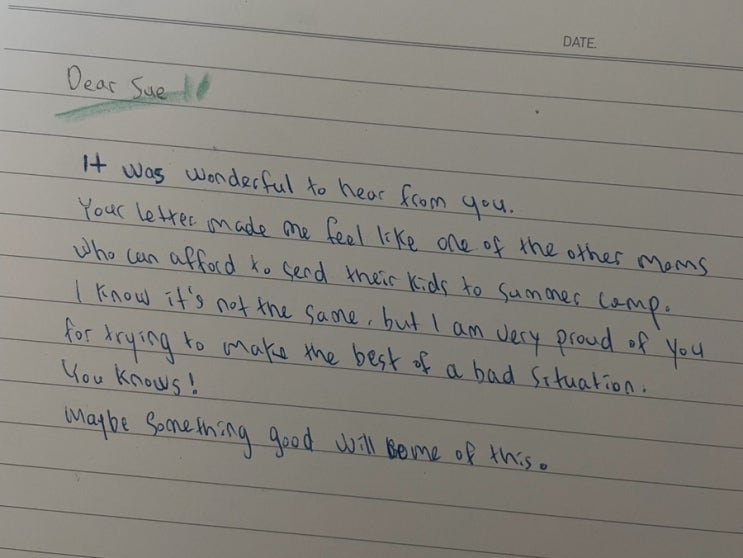 DATE.
Dear Sue !!
It was wonderful to hear from you.
Your letter made me feel like one of the other moms
who can afford to send their kids to summer camp.
I know it's not the same, but I am very proud of you
for trying to make the best of a bad situation.
You knows!
Maybe something good will bome of this.